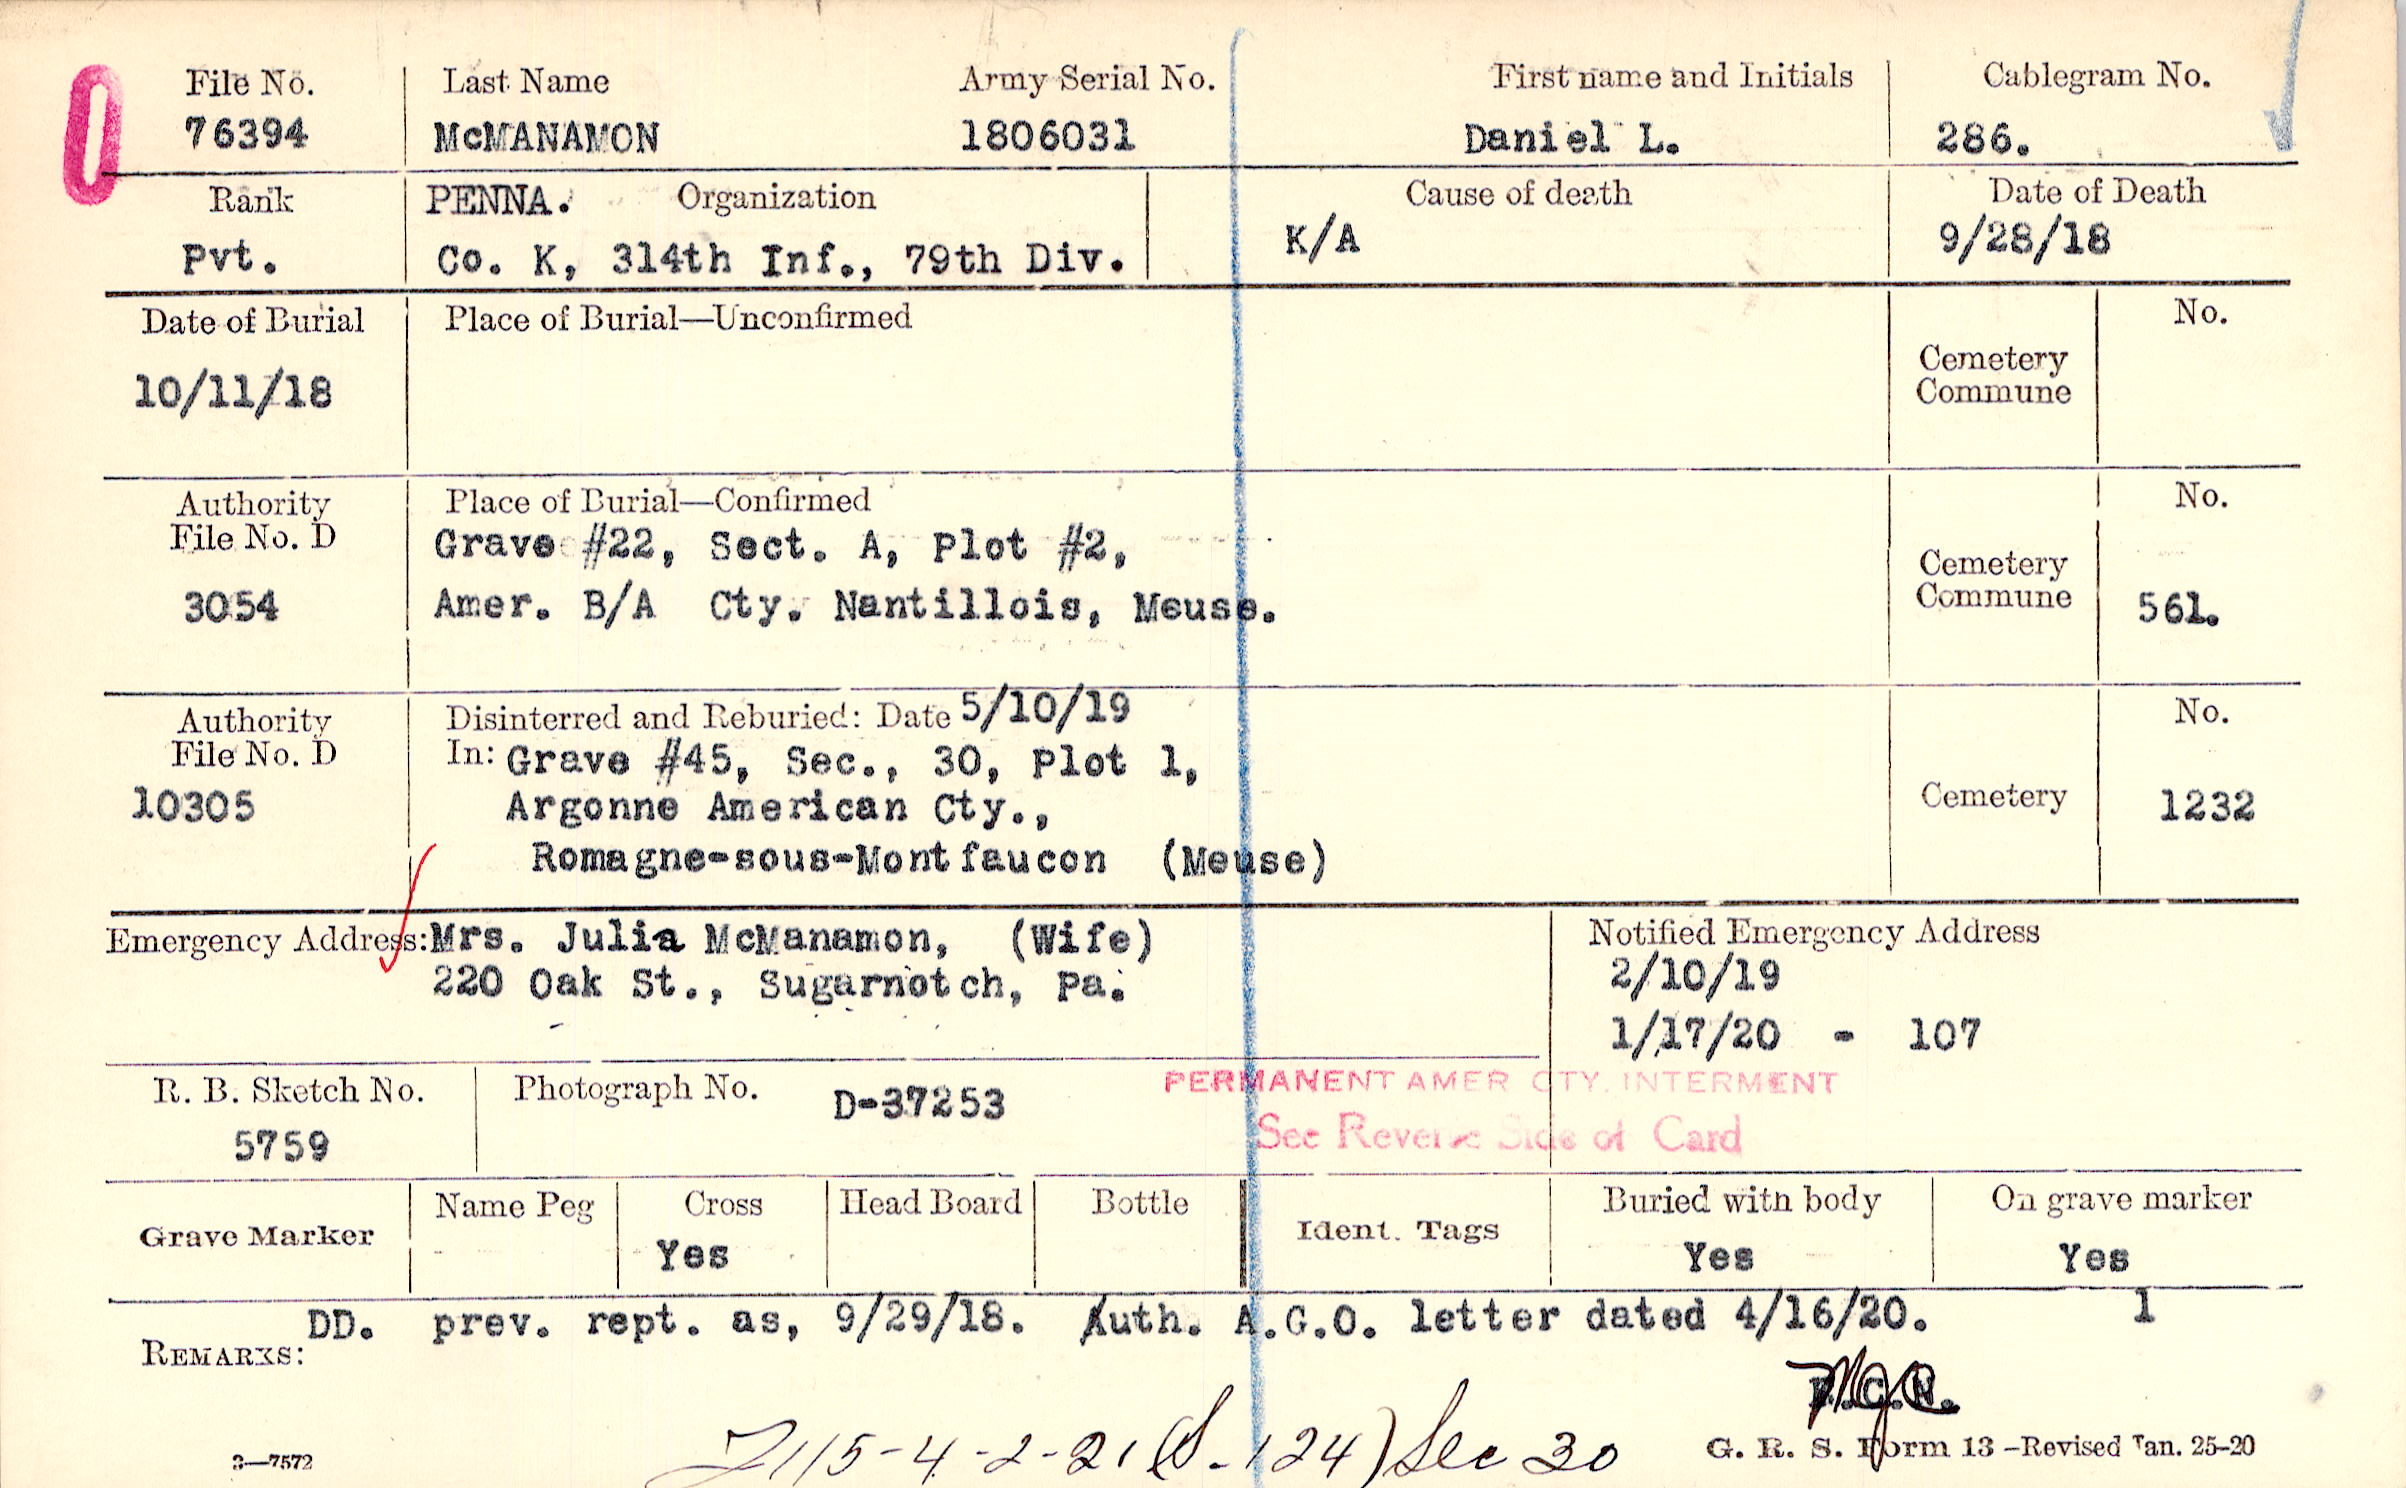 File No. Last Name Army Serial No. First name and Initials Cablegram No.
76394 McMANAMON 1806031 Daniel L. 286.
Rank PENNA. Organization Cause of death Date of Death
Pvt. Co. K, 314th Inf., 79th Div. K/A 9/28/18
Date of Burial Place of Burial—Unconfirmed No.
10/11/18 Cemetery
Commune
Authority Place of Burial—Confirmed No.
File No. D Grave #22, Sect. A, Plot #2, Cemetery
3054 Amer. B/A Cty. Nantillois, Meuse. Commune 561.
Authority Disinterred and Reburied: Date 5/10/19 No.
File No. D In: Grave #45, Sec., 30, Plot 1,
10305 Argonne American Cty., Cemetery 1232
Romagne-sous-Montfaucon (Meuse)
Emergency Address: Mrs. Julia McManamon, (Wife) Notified Emergency Address
220 Oak St., Sugarnotch, Pa. 2/10/19
1/17/20 - 107
R. B. Sketch No. Photograph No. D-37253 PERMANENT AMER CTY. INTERMENT
5759 See Reverse Side of Card
Grave Marker Name Peg Cross Head Board Bottle Ident. Tags Buried with body On grave marker
Yes Yes Yes
DD. prev. rept. as, 9/29/18. Auth. A.G.O. letter dated 4/16/20. 1
REMARKS:
115-4-2-21 (S-124) Sec 30
3—7572 G. R. S. Form 13 –Revised Jan. 25-20